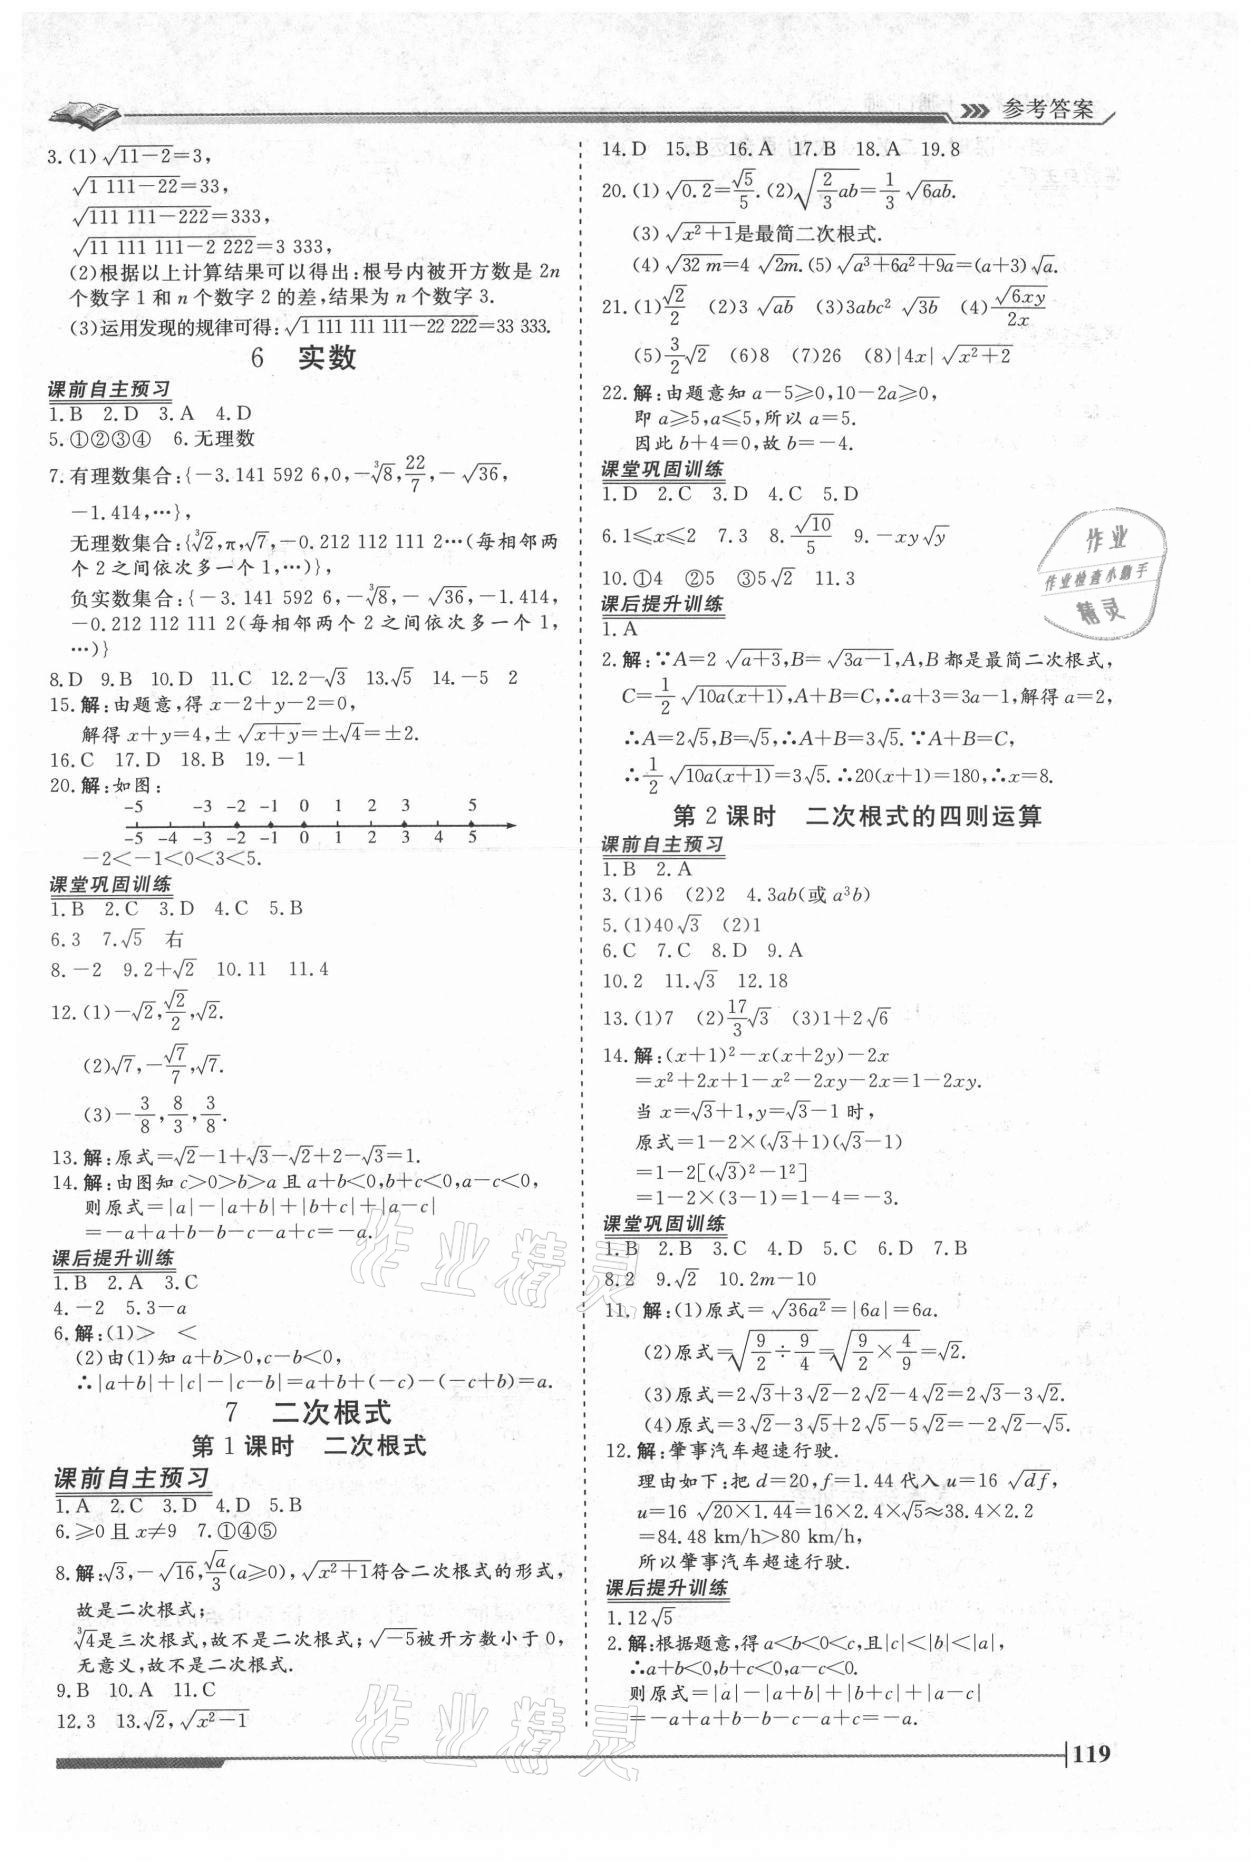 参考答案
3.(1)√(11-2)=3,
√(1 111-22)=33,
√(111 111-222)=333,
√(11 111 111-2 222)=3 333,
(2)根据以上计算结果可以得出:根号内被开方数是 2n
个数字 1 和 n 个数字 2 的差,结果为 n 个数字 3.
(3)运用发现的规律可得:√(1 111 111 111-22 222)=33 333.
6 实数
课前自主预习
1.B 2.D 3.A 4.D
5.①②③④ 6.无理数
7.有理数集合:{-3.141 592 6,0,-∛8,22/7,-√36,
-1.414,…},
无理数集合:{∛2,π,√7,-0.212 112 111 2…(每相邻两
个 2 之间依次多一个 1,…)},
负实数集合:{-3.141 592 6,-∛8,-√36,-1.414,
-0.212 112 111 2(每相邻两个 2 之间依次多一个 1,
…)}
8.D 9.B 10.D 11.C 12.2-√3 13.√5 14.-5 2
15.解:由题意,得 x-2+y-2=0,
解得 x+y=4,±√(x+y)=±√4=±2.
16.C 17.D 18.B 19.-1
20.解:如图:
-5 -3 -2 -1 0 1 2 3 5
-5 -4 -3 -2 -1 0 1 2 3 4 5
-2<-1<0<3<5.
课堂巩固训练
1.B 2.C 3.D 4.C 5.B
6.3 7.√5 右
8.-2 9.2+√2 10.11 11.4
12.(1)-√2,√2/2,√2.
(2)√7,-√7/7,√7.
(3)-3/8,8/3,3/8.
13.解:原式=√2-1+√3-√2+2-√3=1.
14.解:由图知 c>0>b>a 且 a+b<0,b+c<0,a-c<0,
则原式=|a|-|a+b|+|b+c|+|a-c|
=-a+a+b-b-c-a+c=-a.
课后提升训练
1.B 2.A 3.C
4.-2 5.3-a
6.解:(1)> <
(2)由(1)知 a+b>0,c-b<0,
∴|a+b|+|c|-|c-b|=a+b+(-c)-(-c+b)=a.
7 二次根式
第 1 课时 二次根式
课前自主预习
1.A 2.C 3.D 4.D 5.B
6.≥0 且 x≠9 7.①④⑤
8.解:√3,-√16,√a/3(a≥0),√(x²+1)符合二次根式的形式,
故是二次根式;
∛4是三次根式,故不是二次根式;√(-5)被开方数小于 0,
无意义,故不是二次根式.
9.B 10.A 11.C
12.3 13.√2,√(x²-1)
14.D 15.B 16.A 17.B 18.A 19.8
20.(1)√0.2=√5/5.(2)√(2/3 ab)=1/3 √(6ab).
(3)√(x²+1)是最简二次根式.
(4)√(32m)=4√(2m).(5)√(a³+6a²+9a)=(a+3)√a.
21.(1)√2/2 (2)3√(ab) (3)3abc²√(3b) (4)√(6xy)/2x
(5)3/2 √2 (6)8 (7)26 (8)|4x|√(x²+2)
22.解:由题意知 a-5≥0,10-2a≥0,
即 a≥5,a≤5,所以 a=5.
因此 b+4=0,故 b=-4.
课堂巩固训练
1.D 2.C 3.D 4.C 5.D
6.1≤x≤2 7.3 8.√10/5 9.-xy√y
10.①4 ②5 ③5√2 11.3
课后提升训练
1.A
2.解:∵A=2√(a+3),B=√(3a-1),A,B 都是最简二次根式,
C=1/2 √(10a(x+1)),A+B=C,∴a+3=3a-1,解得 a=2,
∴A=2√5,B=√5,∴A+B=3√5.∵A+B=C,
∴1/2 √(10a(x+1))=3√5.∴20(x+1)=180,∴x=8.
第 2 课时 二次根式的四则运算
课前自主预习
1.B 2.A
3.(1)6 (2)2 4.3ab(或 a³b)
5.(1)40√3 (2)1
6.C 7.C 8.D 9.A
10.2 11.√3 12.18
13.(1)7 (2)17/3 √3 (3)1+2√6
14.解:(x+1)²-x(x+2y)-2x
=x²+2x+1-x²-2xy-2x=1-2xy.
当 x=√3+1,y=√3-1 时,
原式=1-2×(√3+1)(√3-1)
=1-2[(√3)²-1²]
=1-2×(3-1)=1-4=-3.
课堂巩固训练
1.B 2.B 3.C 4.D 5.C 6.D 7.B
8.2 9.√2 10.2m-10
11.解:(1)原式=√(36a²)=|6a|=6a.
(2)原式=√(9/2÷9/4)=√(9/2×4/9)=√2.
(3)原式=2√3+3√2-2√2-4√2=2√3-3√2.
(4)原式=3√2-3√5+2√5-5√2=-2√2-√5.
12.解:肇事汽车超速行驶.
理由如下:把 d=20,f=1.44 代入 u=16√(df),
u=16√(20×1.44)=16×2.4×√5≈38.4×2.2
=84.48 km/h>80 km/h,
所以肇事汽车超速行驶.
课后提升训练
1.12√5
2.解:根据题意,得 a<b<0<c,且|c|<|b|<|a|,
∴a+b<0,b+c<0,a-c<0.
则原式=|a|-|a+b|+|b+c|+|a-c|
=-a+a+b-b-c-a+c=-a.
作业
作业检查小助手
精灵
作业精灵
作业精灵
119